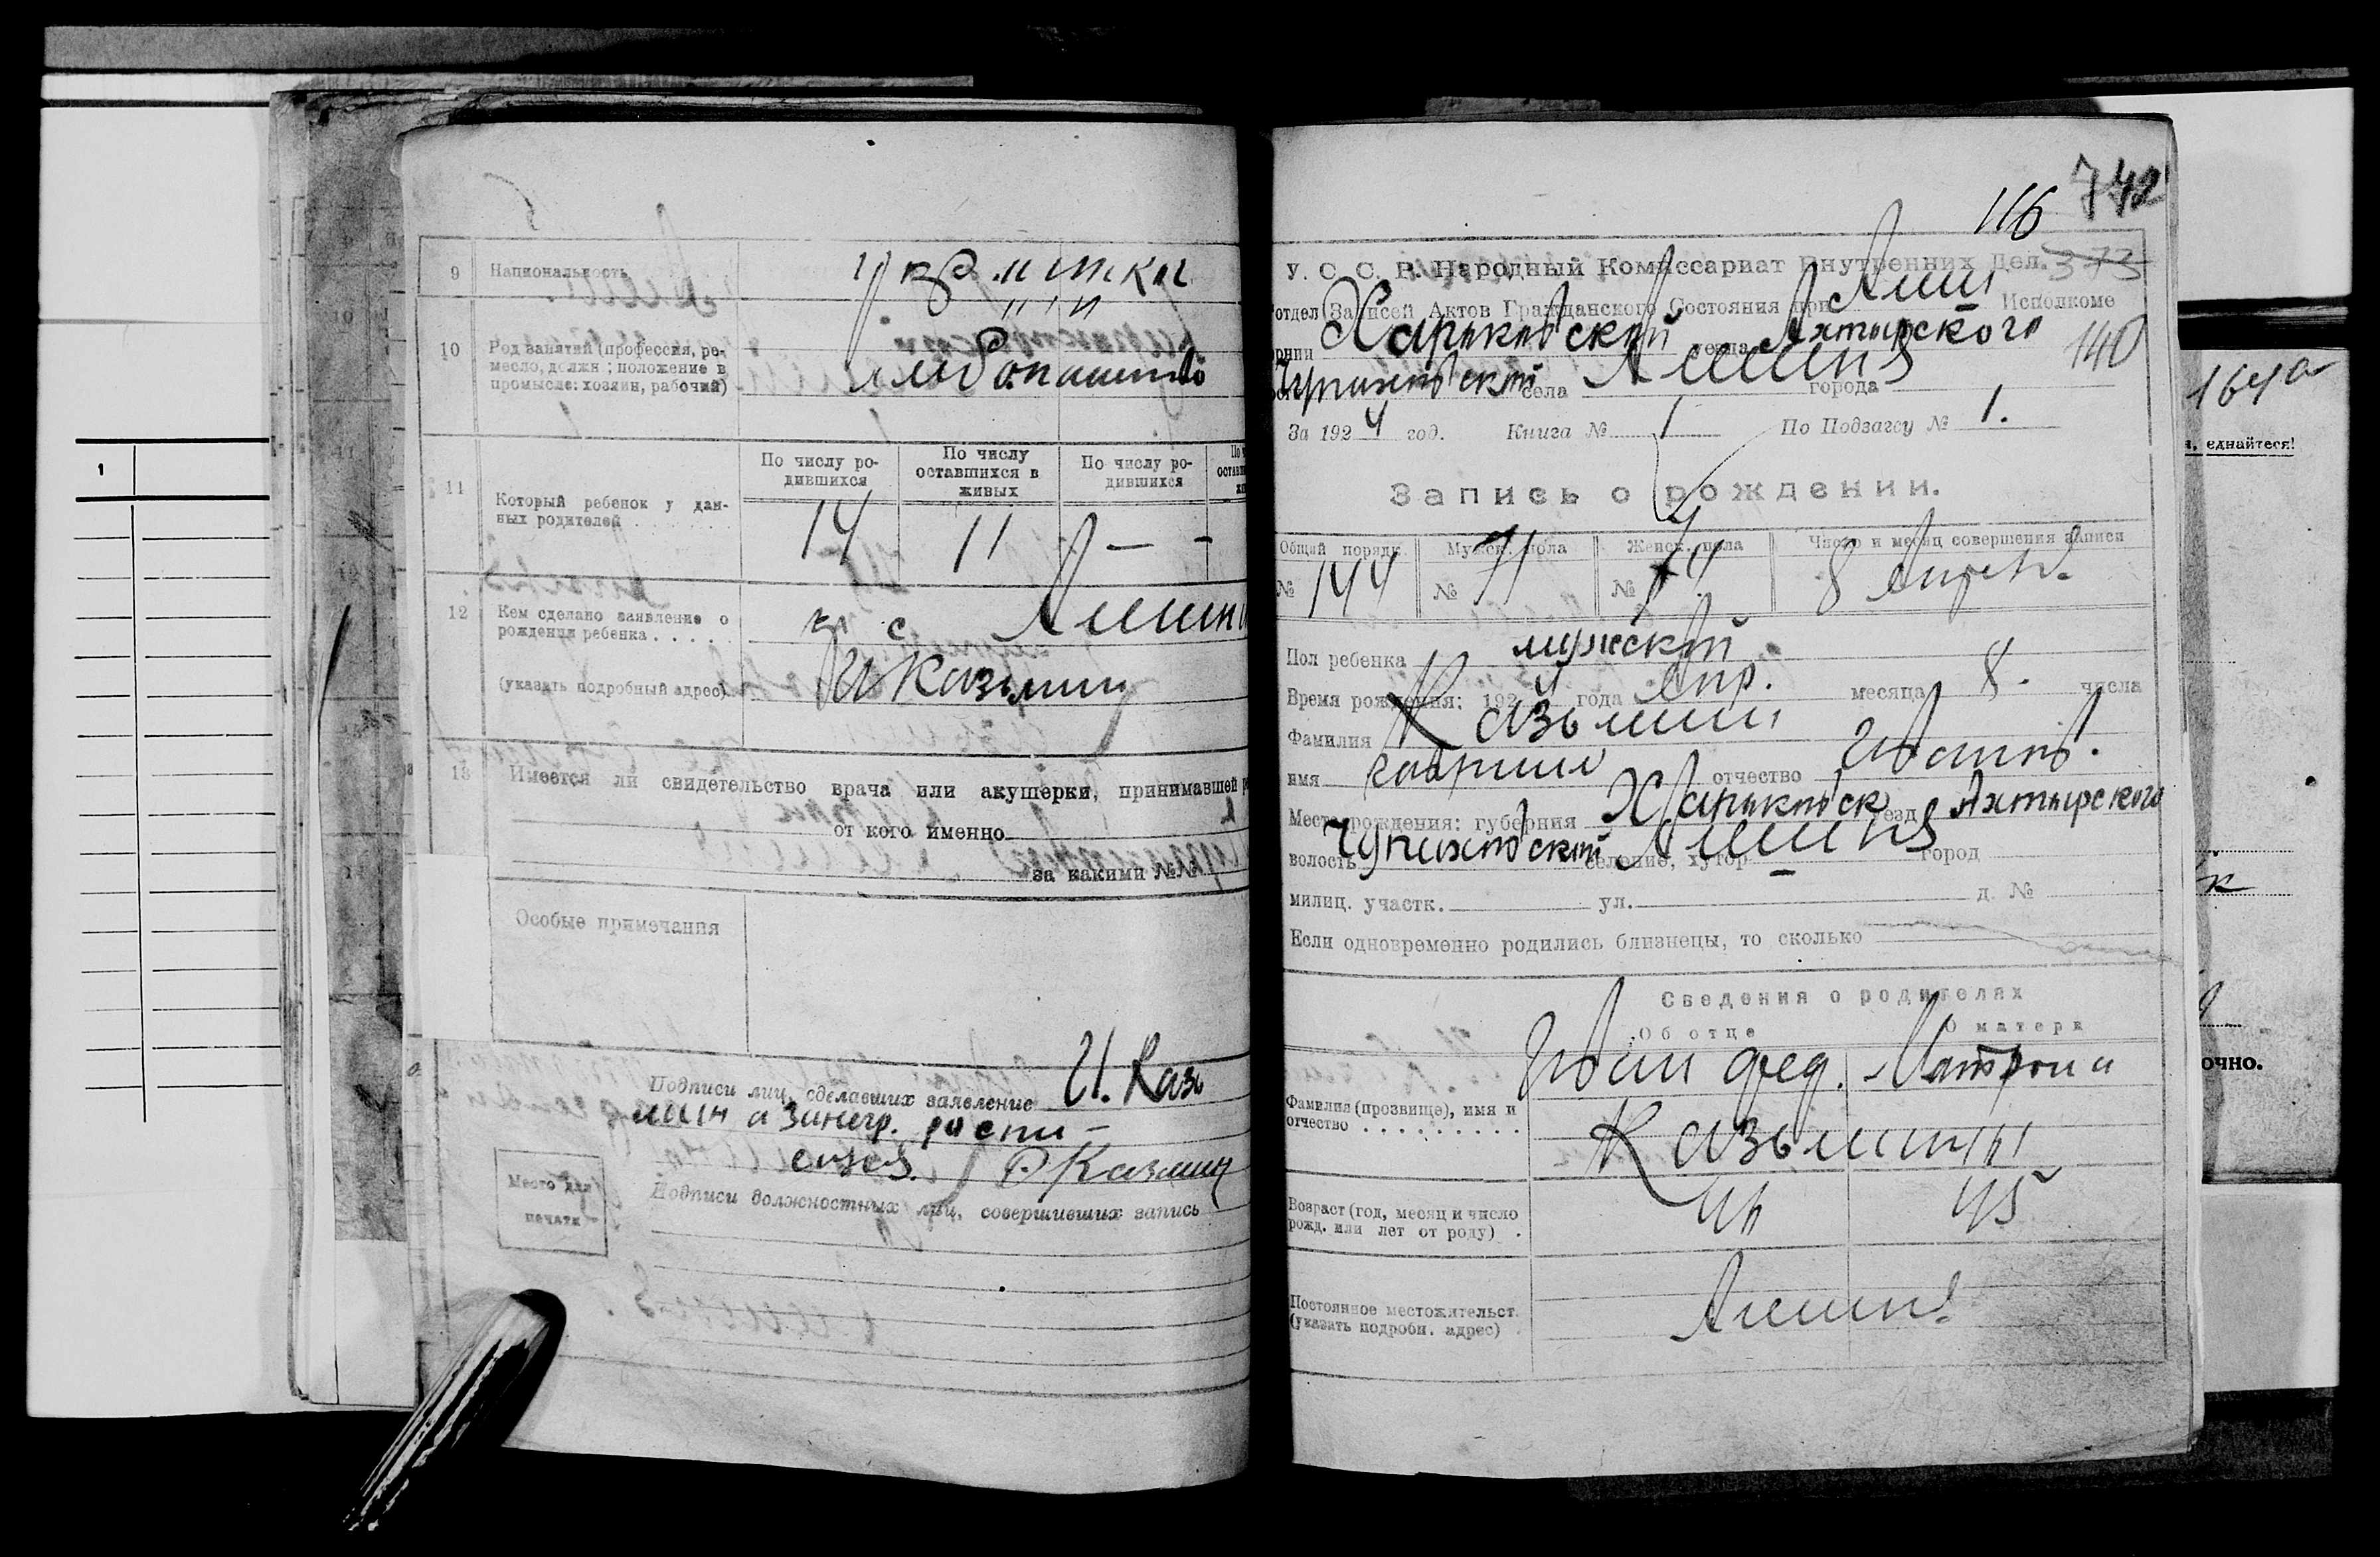 1
9 Национальность украинка
" "
10 Род занятий (профессия, ре-
месло, должн; положение в
промысле: хозяин, рабочий)
хлебопашество
По числу ро-
дившихся
По числу
оставшихся в
живых
По числу ро-
дившихся
11 Который ребенок у дан-
ных родителей
14 11 — -
12 Кем сделано заявление о
рождении ребенка . . . . .
(указать подробный адрес)
с
И Казьмин
13 Имеется ли свидетельство врача или акушерки, принимавшей
от кого именно
за какими №№
Особые примечания
Подписи лиц, сделавших заявление И. Казь
мин а за негр. распи-
сався. Казмин
Место для
печати
Подписи должностных лиц, совершивших запись
742
116
У. С. С. Р. Народный Комиссариат Внутренних Дел. 373
отдел Записей Актов Гражданского Состояния при Исполкоме
Харьковской уезда Ахтырского 140
села города
За 1924 год. Книга № 1 По Подзагсу № 1.
Запись о рождении.
Общий порядк. Мужск. пола Женск. пола Число и месяц совершения записи
№ 144 № 71 № 8 Апреля
Пол ребенка мужской
Время рождения: 1924 года Апр. месяца 8. числа
Фамилия Казьмин
имя Гавриил отчество Иванов.
Место рождения: губерния Харьковск уезд Ахтырского
волость Чупаховской селение, хутор город
милиц. участк. ул. д. №
Если одновременно родились близнецы, то сколько
Сведения о родителях
Об отце О матери
Фамилия (прозвище), имя и
отчество . . . . . . . . .
Иван Фед. Матрона
Казьмины
Возраст (год, месяц и число
рожд. или лет от роду) .
46 45
Постоянное местожительст.
(указать подробн. адрес)
164а
єднайтеся!
очно.